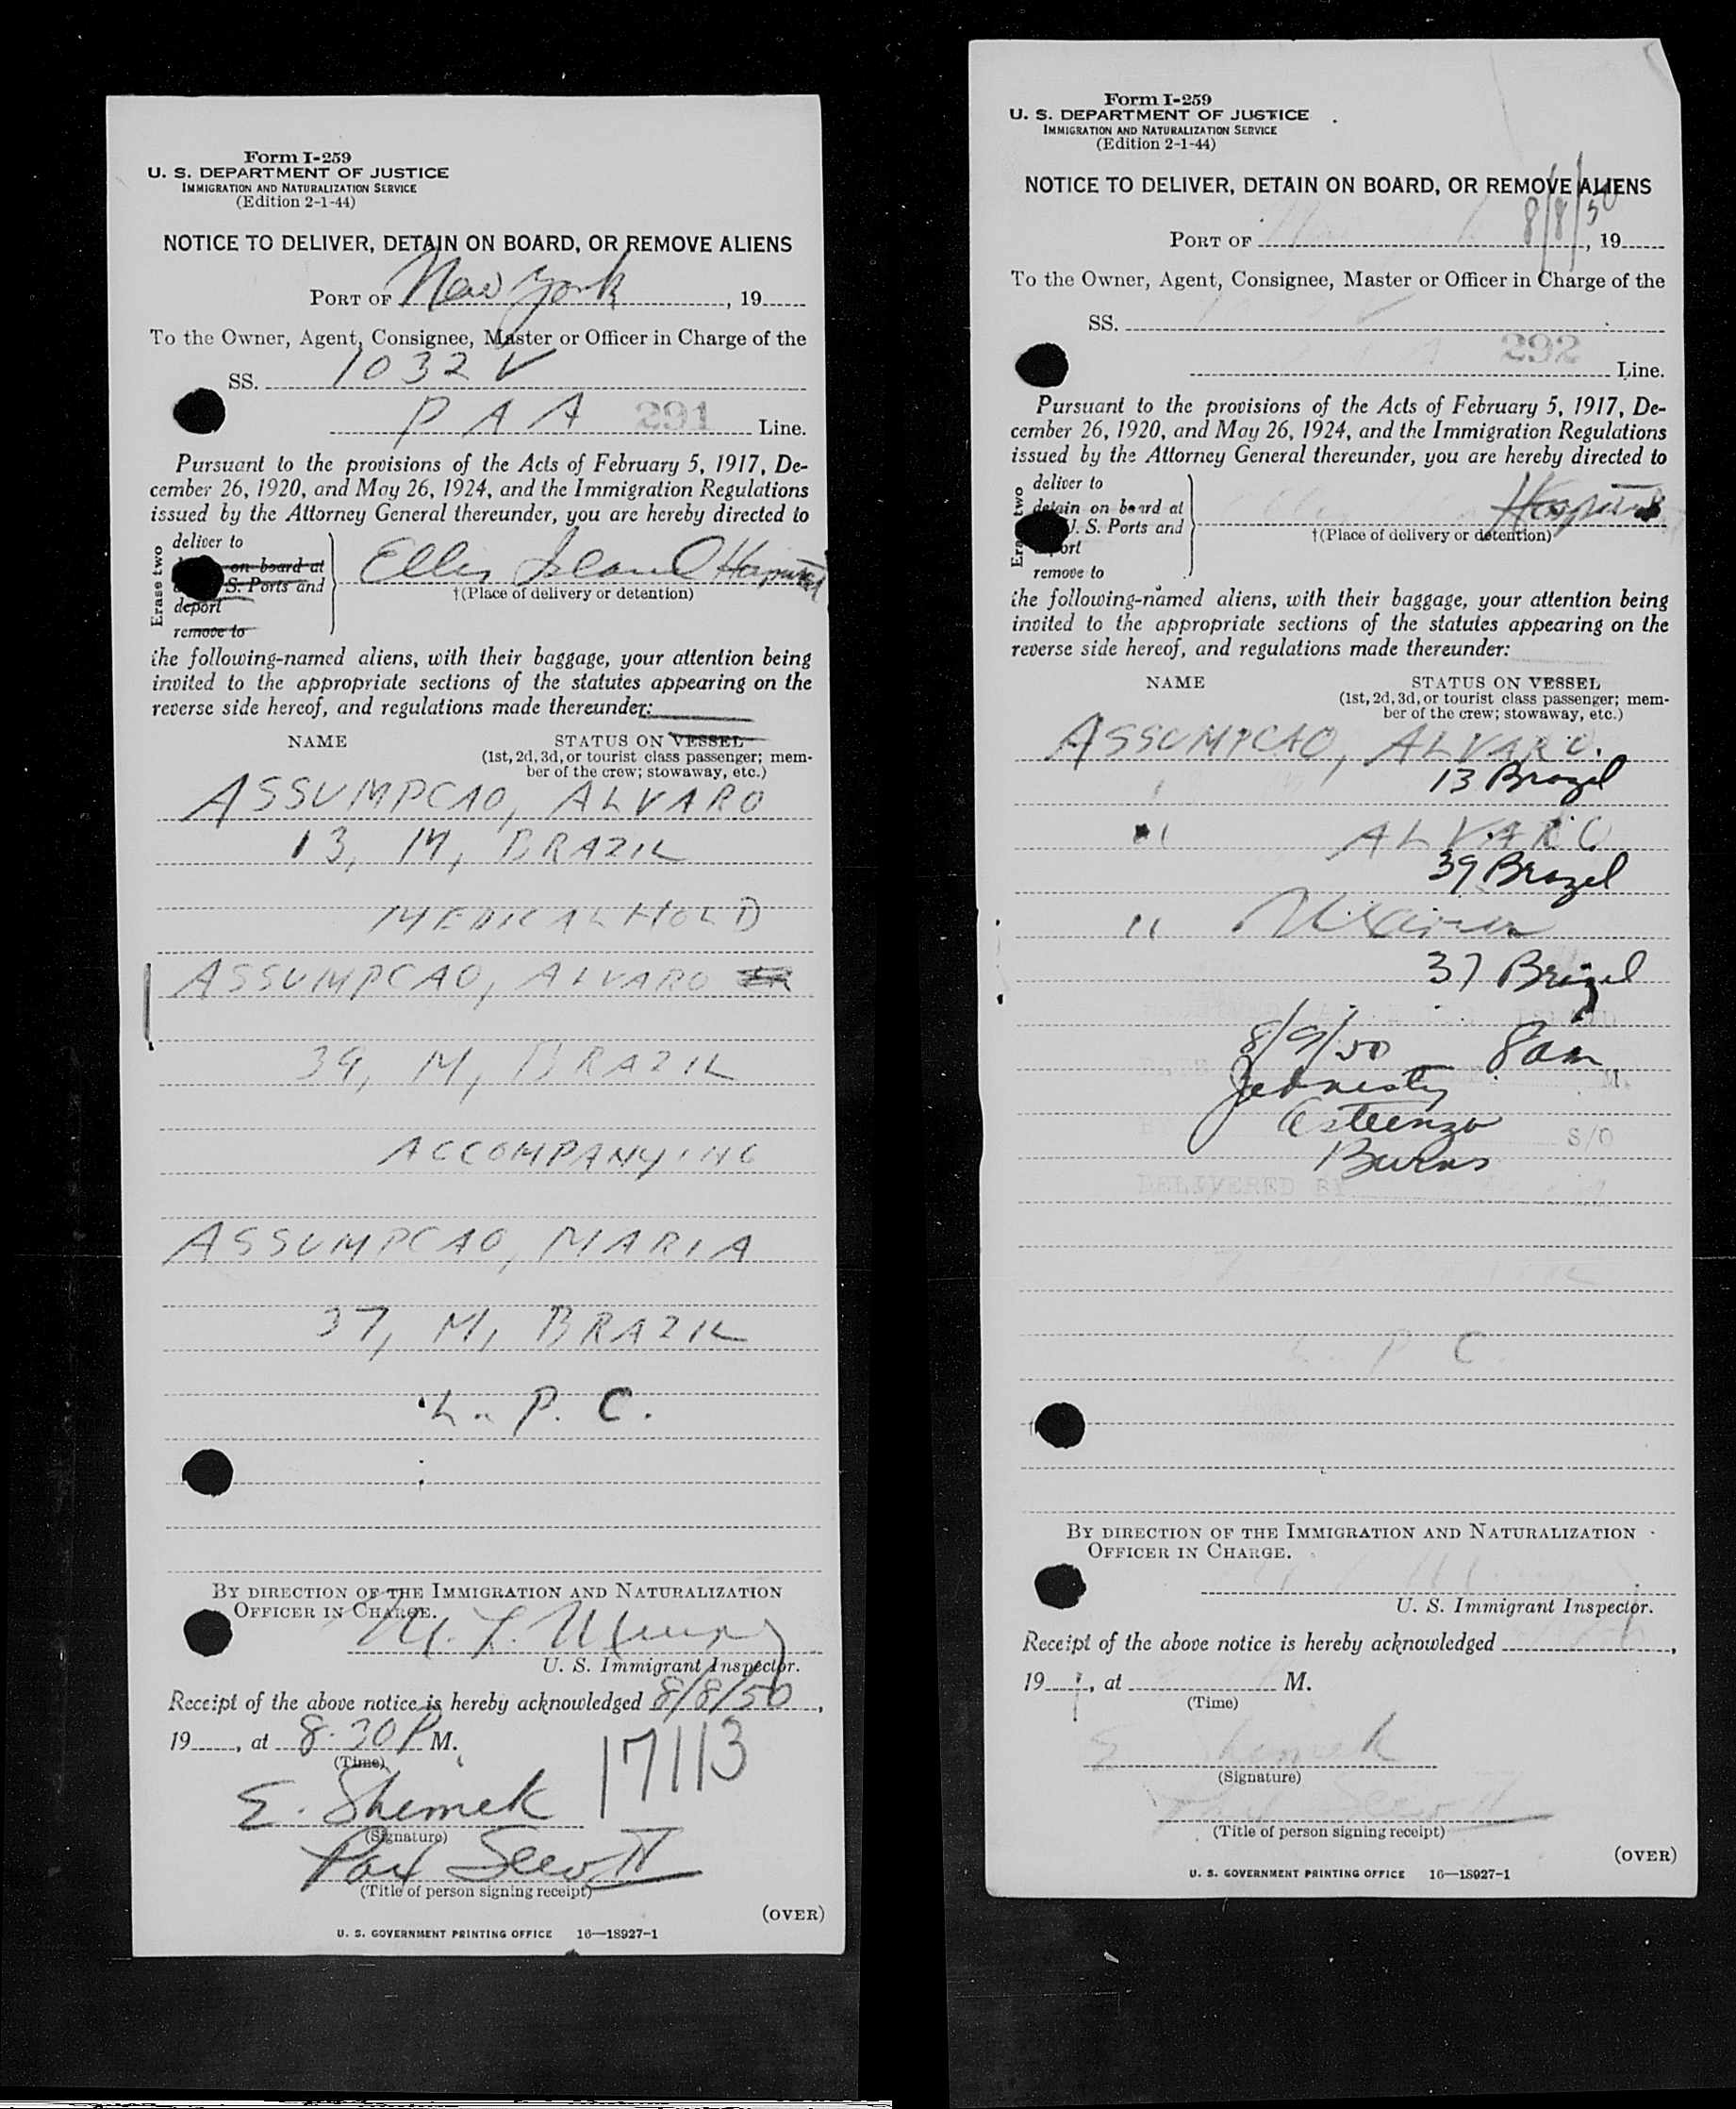 Form I-259
U. S. DEPARTMENT OF JUSTICE
IMMIGRATION AND NATURALIZATION SERVICE
(Edition 2-1-44)
NOTICE TO DELIVER, DETAIN ON BOARD, OR REMOVE ALIENS
PORT OF New York, 19
To the Owner, Agent, Consignee, Master or Officer in Charge of the
SS. 1032 V
PAA 291 Line.
Pursuant to the provisions of the Acts of February 5, 1917, De-
cember 26, 1920, and May 26, 1924, and the Immigration Regulations
issued by the Attorney General thereunder, you are hereby directed to
Erase two
deliver to
on board at
S. Ports and
deport
remove to
Ellis Island Hospital
†(Place of delivery or detention)
the following-named aliens, with their baggage, your attention being
invited to the appropriate sections of the statutes appearing on the
reverse side hereof, and regulations made thereunder:
NAME STATUS ON VESSEL
(1st, 2d, 3d, or tourist class passenger; mem-
ber of the crew; stowaway, etc.)
ASSUMPCAO, ALVARO
13, M, BRAZIL
MEDICAL HOLD
ASSUMPCAO, ALVARO
39, M, BRAZIL
ACCOMPANYING
ASSUMPCAO, MARIA
37, M, BRAZIL
L. P. C.
BY DIRECTION OF THE IMMIGRATION AND NATURALIZATION
OFFICER IN CHARGE.
U. S. Immigrant Inspector.
Receipt of the above notice is hereby acknowledged 8/8/50,
19, at 8:30 P M.
(Time)
17113
E. Shimek
(Signature)
(Title of person signing receipt)
(OVER)
U. S. GOVERNMENT PRINTING OFFICE 16—18927-1
Form I-259
U. S. DEPARTMENT OF JUSTICE
IMMIGRATION AND NATURALIZATION SERVICE
(Edition 2-1-44)
NOTICE TO DELIVER, DETAIN ON BOARD, OR REMOVE ALIENS
PORT OF 8/8/50, 19
To the Owner, Agent, Consignee, Master or Officer in Charge of the
SS.
292
Line.
Pursuant to the provisions of the Acts of February 5, 1917, De-
cember 26, 1920, and May 26, 1924, and the Immigration Regulations
issued by the Attorney General thereunder, you are hereby directed to
two
deliver to
detain on board at
U. S. Ports and
remove to
Hospital
†(Place of delivery or detention)
the following-named aliens, with their baggage, your attention being
invited to the appropriate sections of the statutes appearing on the
reverse side hereof, and regulations made thereunder:
NAME STATUS ON VESSEL
(1st, 2d, 3d, or tourist class passenger; mem-
ber of the crew; stowaway, etc.)
ASSUMPCAO, ALVARO.
13 Brazil
" ALVARO
39 Brazil
" Maria
37 Brazil
8/9/50 8am
Burns
S/O
DELIVERED BY
L. P. C.
BY DIRECTION OF THE IMMIGRATION AND NATURALIZATION
OFFICER IN CHARGE.
U. S. Immigrant Inspector.
Receipt of the above notice is hereby acknowledged,
19, at M.
(Time)
E Shimek
(Signature)
(Title of person signing receipt)
(OVER)
U. S. GOVERNMENT PRINTING OFFICE 16—18927-1